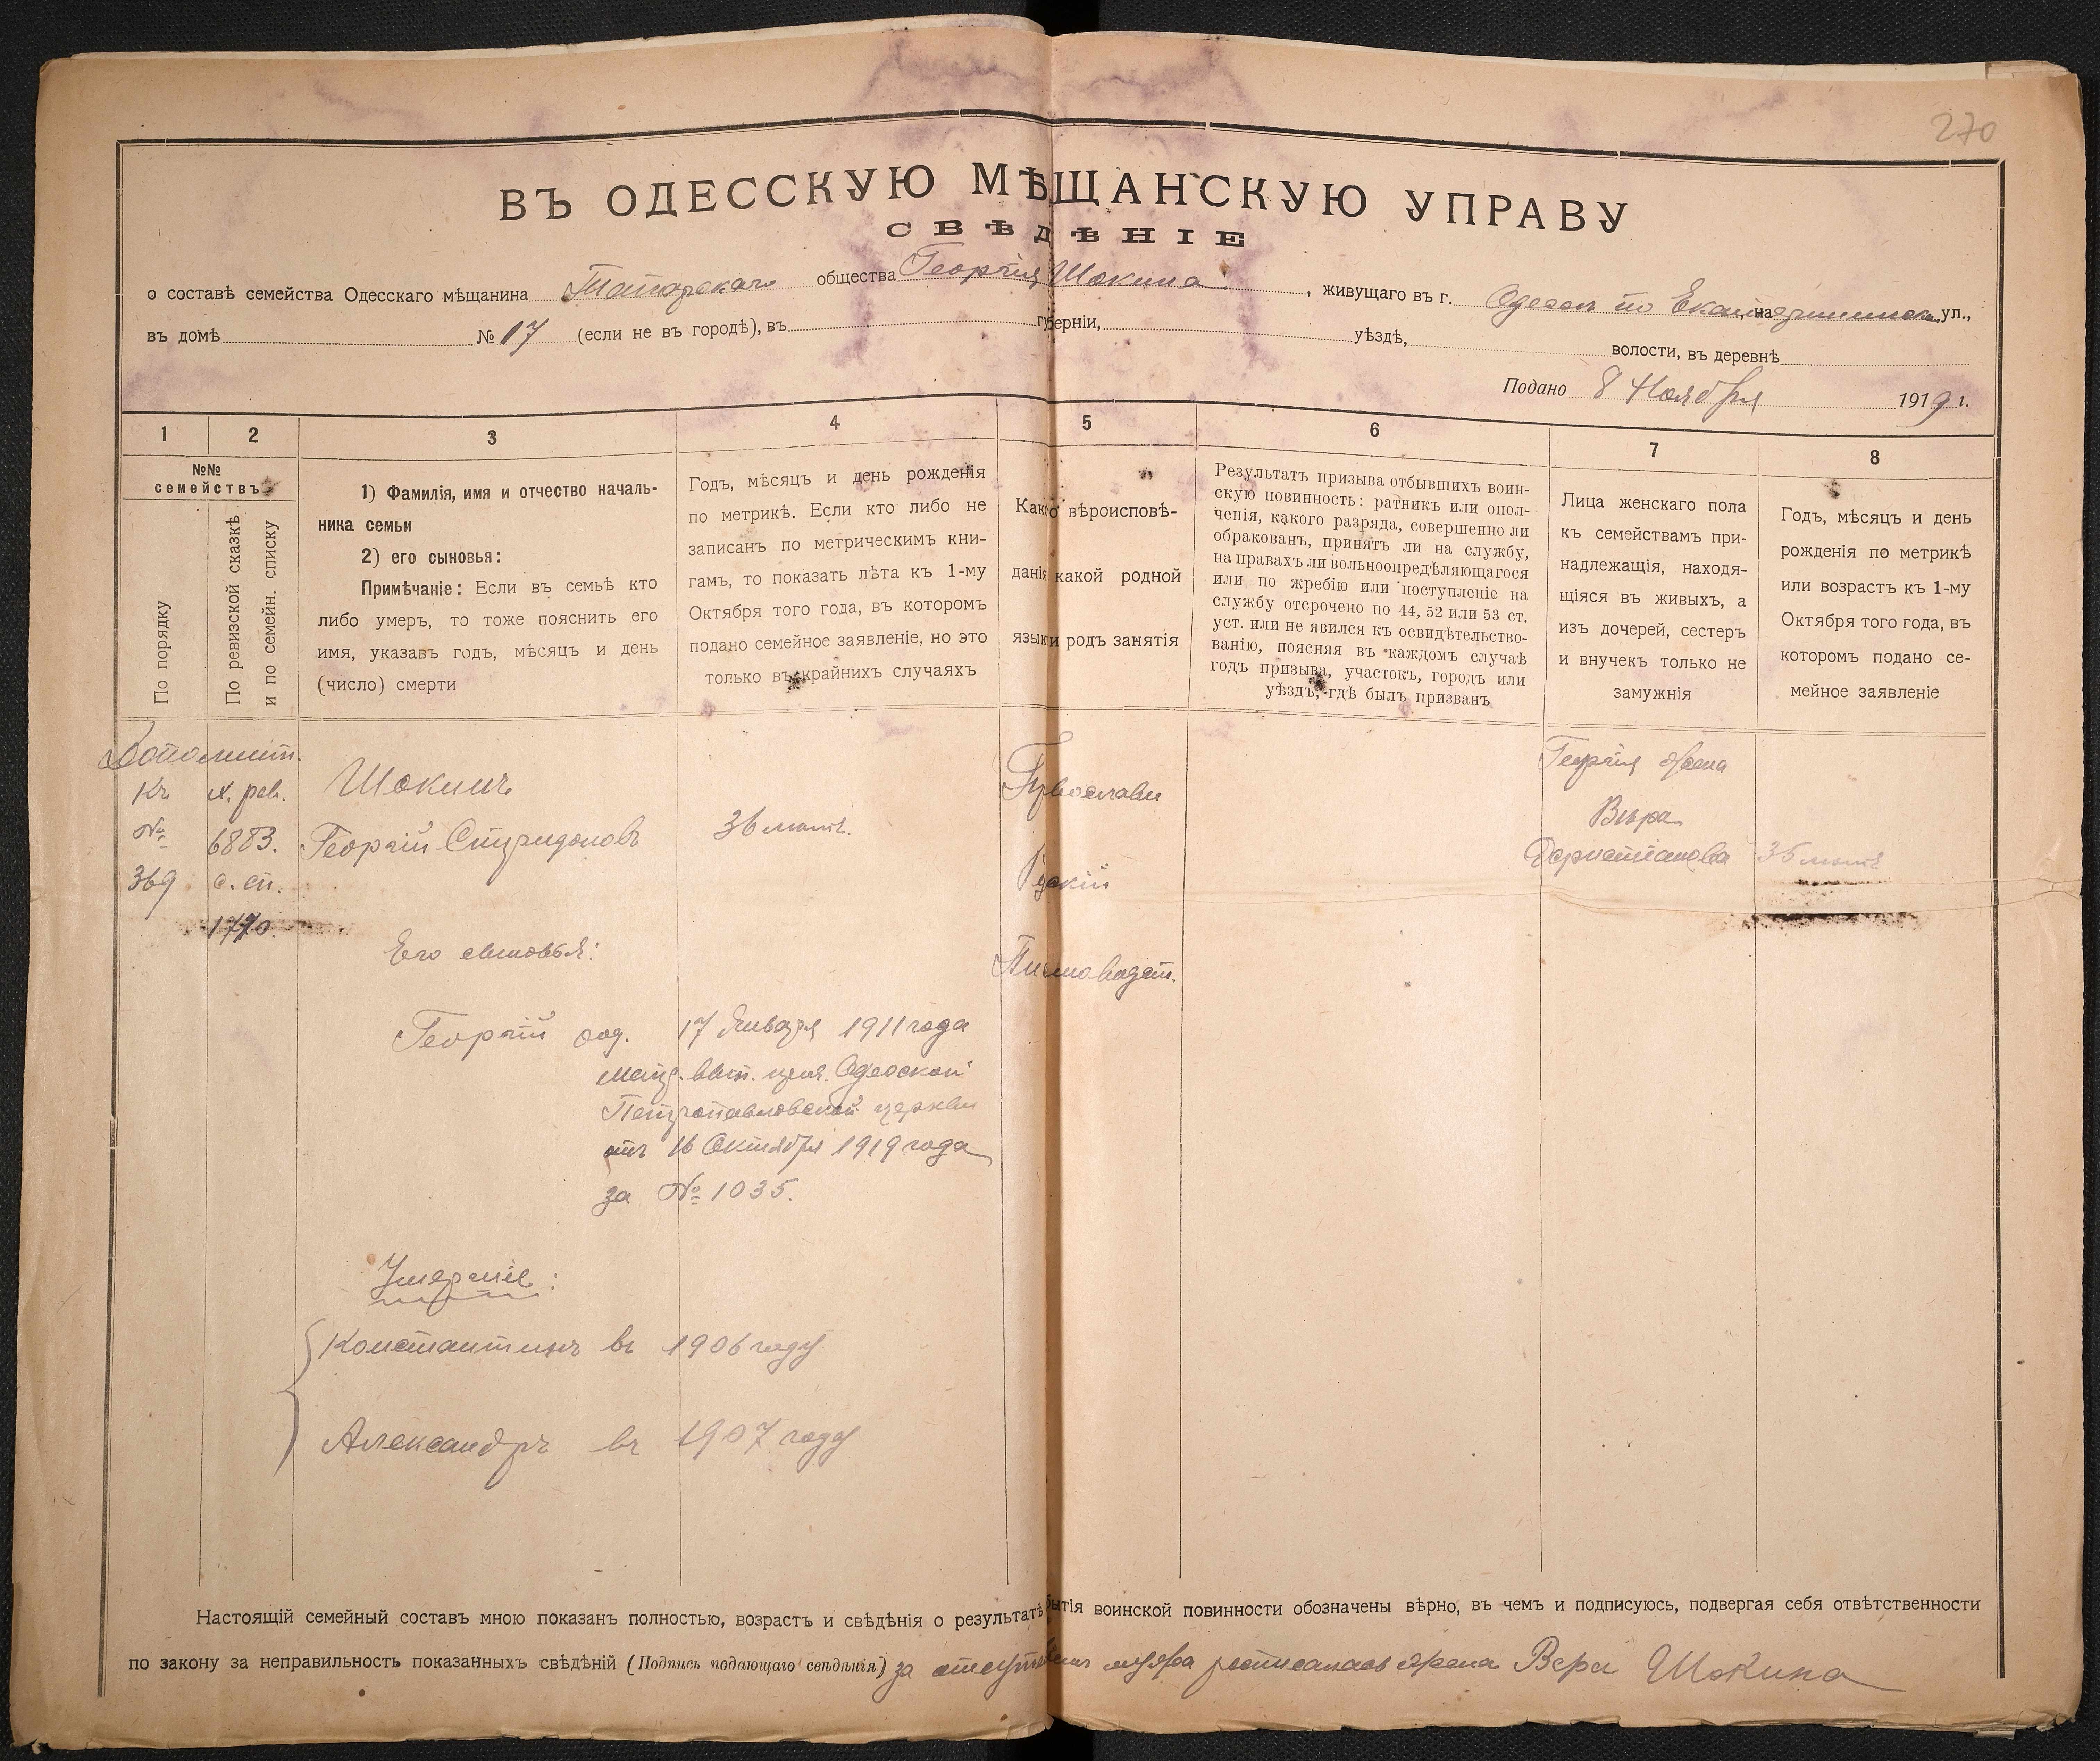 270
ВЪ ОДЕССКУЮ МѢЩАНСКУЮ УПРАВУ
СВѢДѢНІЕ
о составѣ семейства Одесскаго мѣщанина Татарскаго общества Георгія Шокина, живущаго въ г. Одессѣ по Екатерининск. на ул.,
въ домѣ № 17 (если не въ городѣ), въ губерніи, уѣздѣ, волости, въ деревнѣ
Подано 8 Ноября 1919 г.
1 2 3 4 5 6 7 8
№№
семействъ
По порядку
По ревизской сказкѣ
и по семейн. списку
1) Фамилія, имя и отчество началь-
ника семьи
2) его сыновья:
Примѣчаніе: Если въ семьѣ кто
либо умеръ, то тоже пояснить его
имя, указавъ годъ, мѣсяцъ и день
(число) смерти
Годъ, мѣсяцъ и день рожденія
по метрикѣ. Если кто либо не
записанъ по метрическимъ кни-
гамъ, то показать лѣта къ 1-му
Октября того года, въ которомъ
подано семейное заявленіе, но это
только въ крайнихъ случаяхъ
Какого вѣроисповѣ-
данія какой родной
языкъ и родъ занятія
Результатъ призыва отбывшихъ воин-
скую повинность: ратникъ или опол-
ченія, какого разряда, совершенно ли
обракованъ, принятъ ли на службу,
на правахъ ли вольноопредѣляющагося
или по жребію или поступленіе на
службу отсрочено по 44, 52 или 53 ст.
уст. или не явился къ освидѣтельство-
ванію, поясняя въ каждомъ случаѣ
годъ призыва, участокъ, городъ или
уѣздъ, гдѣ былъ призванъ
Лица женскаго пола
къ семействамъ при-
надлежащія, находя-
щіяся въ живыхъ, а
изъ дочерей, сестеръ
и внучекъ только не
замужнія
Годъ, мѣсяцъ и день
рожденія по метрикѣ
или возрастъ къ 1-му
Октября того года, въ
которомъ подано се-
мейное заявленіе
Дополнит.
Къ
№
369
X. рев.
6883.
с. сп.
1770.
Шокинъ
Георгій Спиридоновъ
36 лѣтъ.
Православн
Русскій
Письмоводит.
Георгія жена
Вѣра
36 лѣтъ
Его сыновья:
Георгій род. 17 Января 1911 года
метр. вып. прич. Одесской
Петропавловской церкви
отъ 16 Октября 1919 года
за № 1035.
Умершіе:
Константинъ въ 1906 году
Александръ въ 1907 году
Настоящій семейный составъ мною показанъ полностью, возрастъ и свѣдѣнія о результатѣ бытія воинской повинности обозначены вѣрно, въ чемъ и подписуюсь, подвергая себя отвѣтственности
по закону за неправильность показанныхъ свѣдѣній (Подпись подающаго свѣдѣнія) за отсутствіемъ мужа росписалась жена Вера Шокина